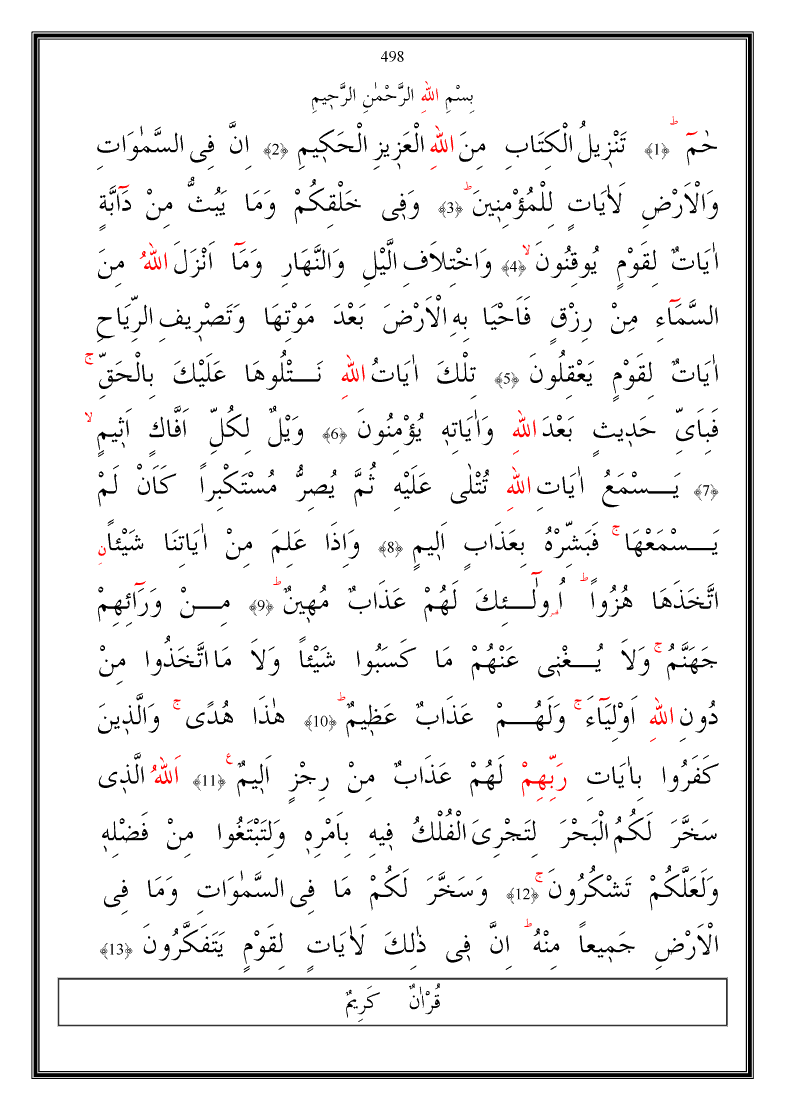 498
بِسْمِ اللهِ الرَّحْمٰنِ الرَّحٖيمِ
حٰمٓ ؕ ﴿1﴾ تَنْزٖيلُ الْكِتَابِ مِنَ اللهِ الْعَزٖيزِ الْحَكٖيمِ ﴿2﴾ اِنَّ فِى السَّمٰوَاتِ
وَالْاَرْضِ لَاٰيَاتٍ لِلْمُؤْمِنٖينَ ؕ ﴿3﴾ وَفٖى خَلْقِكُمْ وَمَا يَبُثُّ مِنْ دَٓابَّةٍ
اٰيَاتٌ لِقَوْمٍ يُوقِنُونَ ۙ ﴿4﴾ وَاخْتِلَافِ الَّيْلِ وَالنَّهَارِ وَمَٓا اَنْزَلَ اللهُ مِنَ
السَّمَٓاءِ مِنْ رِزْقٍ فَاَحْيَا بِهِ الْاَرْضَ بَعْدَ مَوْتِهَا وَتَصْرٖيفِ الرِّيَاحِ
اٰيَاتٌ لِقَوْمٍ يَعْقِلُونَ ﴿5﴾ تِلْكَ اٰيَاتُ اللهِ نَـــتْلُوهَا عَلَيْكَ بِالْحَقِّ ۚ
فَبِاَىِّ حَدٖيثٍ بَعْدَ اللهِ وَاٰيَاتِهٖ يُؤْمِنُونَ ﴿6﴾ وَيْلٌ لِكُلِّ اَفَّاكٍ اَثٖيمٍ ۙ
﴿7﴾ يَـــسْمَعُ اٰيَاتِ اللهِ تُتْلٰى عَلَيْهِ ثُمَّ يُصِرُّ مُسْتَكْبِراً كَاَنْ لَمْ
يَـــسْمَعْهَا ۚ فَبَشِّرْهُ بِعَذَابٍ اَلٖيمٍ ﴿8﴾ وَاِذَا عَلِمَ مِنْ اٰيَاتِنَا شَيْئاًنِ
اتَّخَذَهَا هُزُواً ؕ اُو۬لٰٓـــئِكَ لَهُمْ عَذَابٌ مُهٖينٌ ؕ ﴿9﴾ مِـــنْ وَرَٓائِهِمْ
جَهَنَّمُ ۚ وَلَا يُـــغْنٖى عَنْهُمْ مَا كَسَبُوا شَيْئاً وَلَا مَا اتَّخَذُوا مِنْ
دُونِ اللهِ اَوْلِيَٓاءَ ۚ وَلَهُـــمْ عَذَابٌ عَظٖيمٌ ؕ ﴿10﴾ هٰذَا هُدًى ۚ وَالَّذٖينَ
كَفَرُوا بِاٰيَاتِ رَبِّهِمْ لَهُمْ عَذَابٌ مِنْ رِجْزٍ اَلٖيمٌ ࣖ ﴿11﴾ اَللهُ الَّذٖى
سَخَّرَ لَكُمُ الْبَحْرَ لِتَجْرِىَ الْفُلْكُ فٖيهِ بِاَمْرِهٖ وَلِتَبْتَغُوا مِنْ فَضْلِهٖ
وَلَعَلَّكُمْ تَشْكُرُونَ ۚ ﴿12﴾ وَسَخَّرَ لَكُمْ مَا فِى السَّمٰوَاتِ وَمَا فِى
الْاَرْضِ جَمٖيعاً مِنْهُ ؕ اِنَّ فٖى ذٰلِكَ لَاٰيَاتٍ لِقَوْمٍ يَتَفَكَّرُونَ ﴿13﴾
قُرْاٰنٌ كَرٖيمٌ